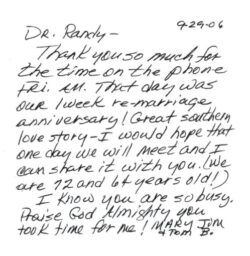 9-29-06
Dr. Randy-
Thank you so much for
the time on the phone
Fri. AM. That day was
our 1 week re-marriage
anniversary! Great southern
love story - I would hope that
one day we will meet and I
can share it with you. (We
are 72 and 64 years old!)
I know you are so busy.
Praise God Almighty you
took time for me! Mary Tom
+ Tom B.